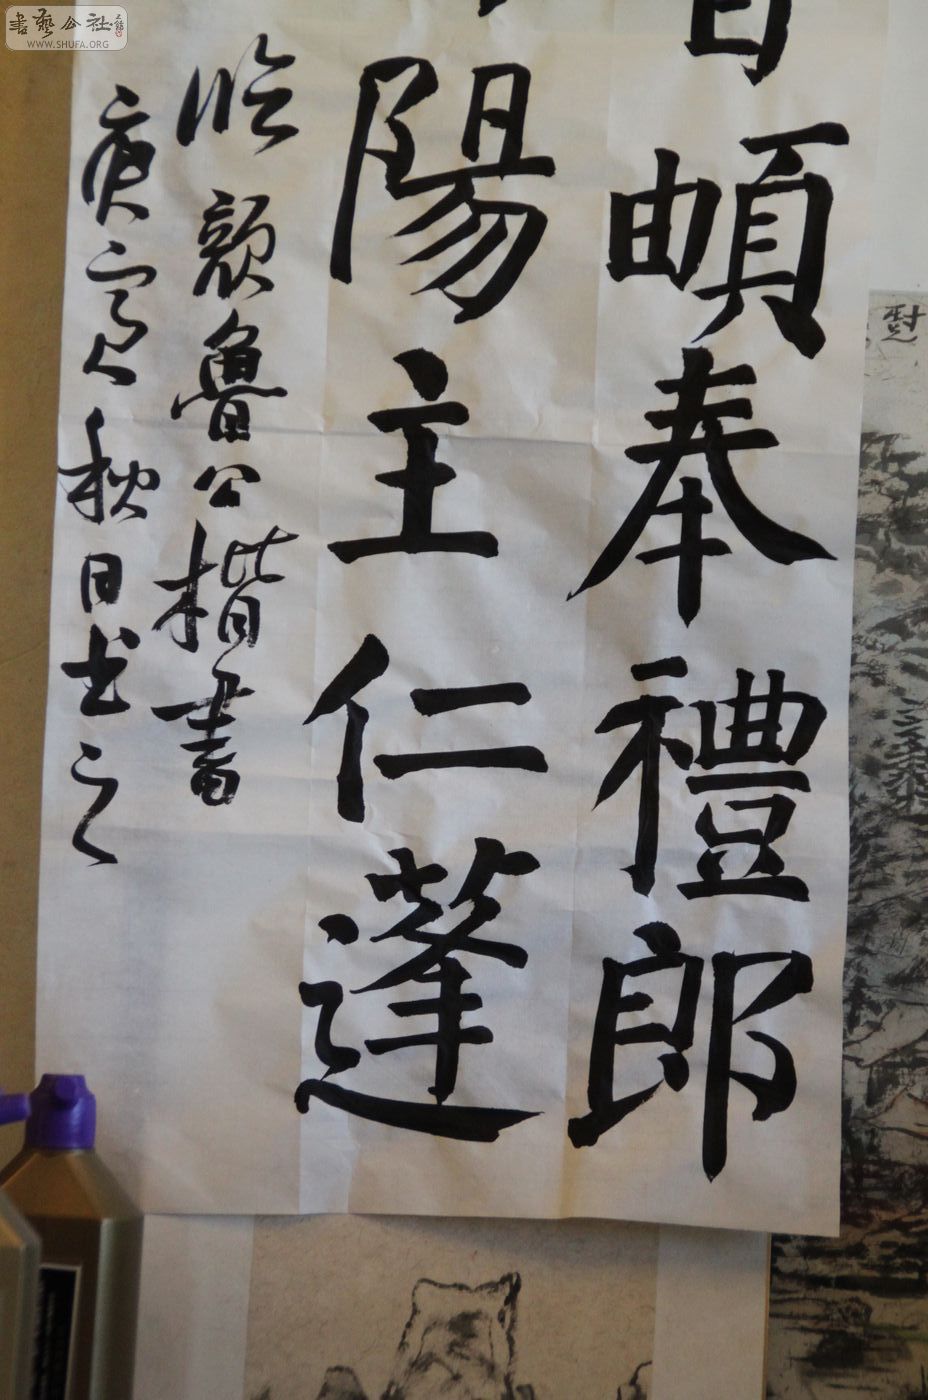 書藝公社
WWW.SHUFA.ORG
頔奉禮郎
陽主仁蓬
臨顏魯公楷書
庚寅秋日书之